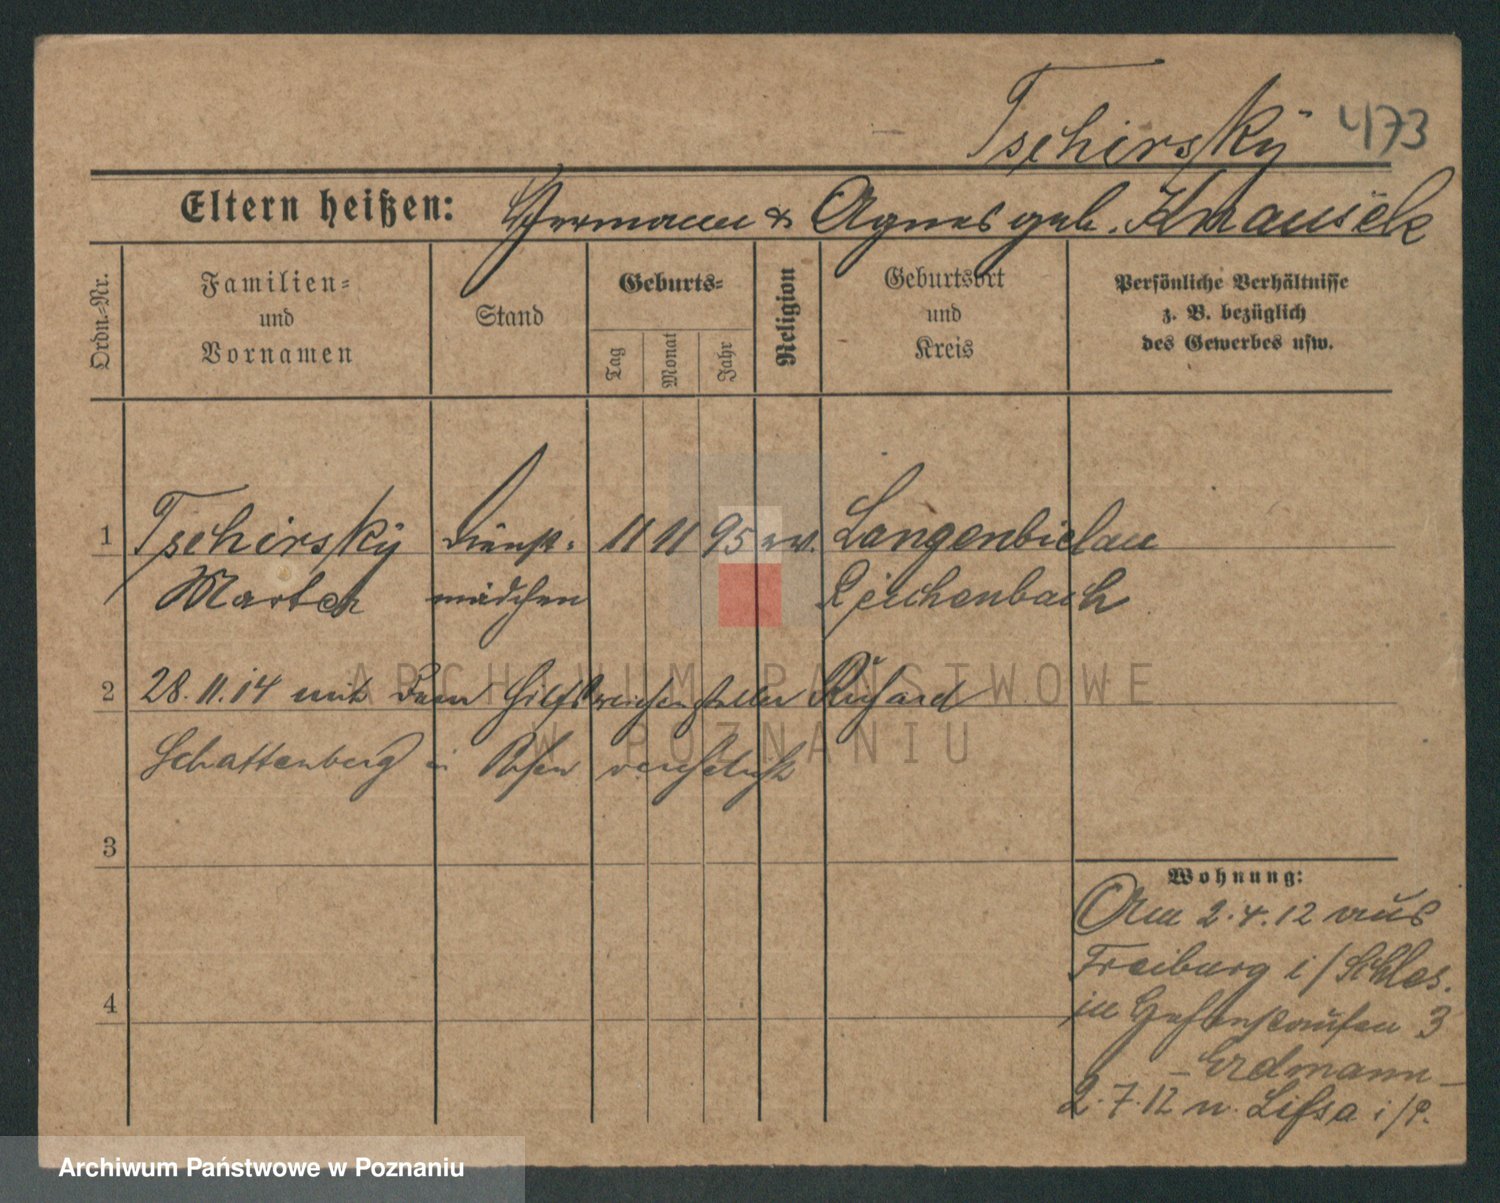 Tschirsky 473
Eltern heißen: Hermann & Agnes geb. Knausek
Ordn.-Nr.
Familien-
und
Vornamen
Stand
Geburts-
Tag
Monat
Jahr
Religion
Geburtsort
und
Kreis
Persönliche Verhältnisse
z. B. bezüglich
des Gewerbes usw.
1 Tschirsky Dienst- 11 11 95 ev. Langenbielau
Martha mädchen Reichenbach
2 28.11.14 mit dem Hilfsweichensteller Richard
Schattenberg in Posen verehelicht
3
4
Wohnung:
Am 2.4.12 aus
Freiburg i/Schles.
in Hohenstaufen 3
- Erdmann -
2.7.12 n. Lissa i/P.
ARCHIWUM PAŃSTWOWE
W POZNANIU
Archiwum Państwowe w Poznaniu